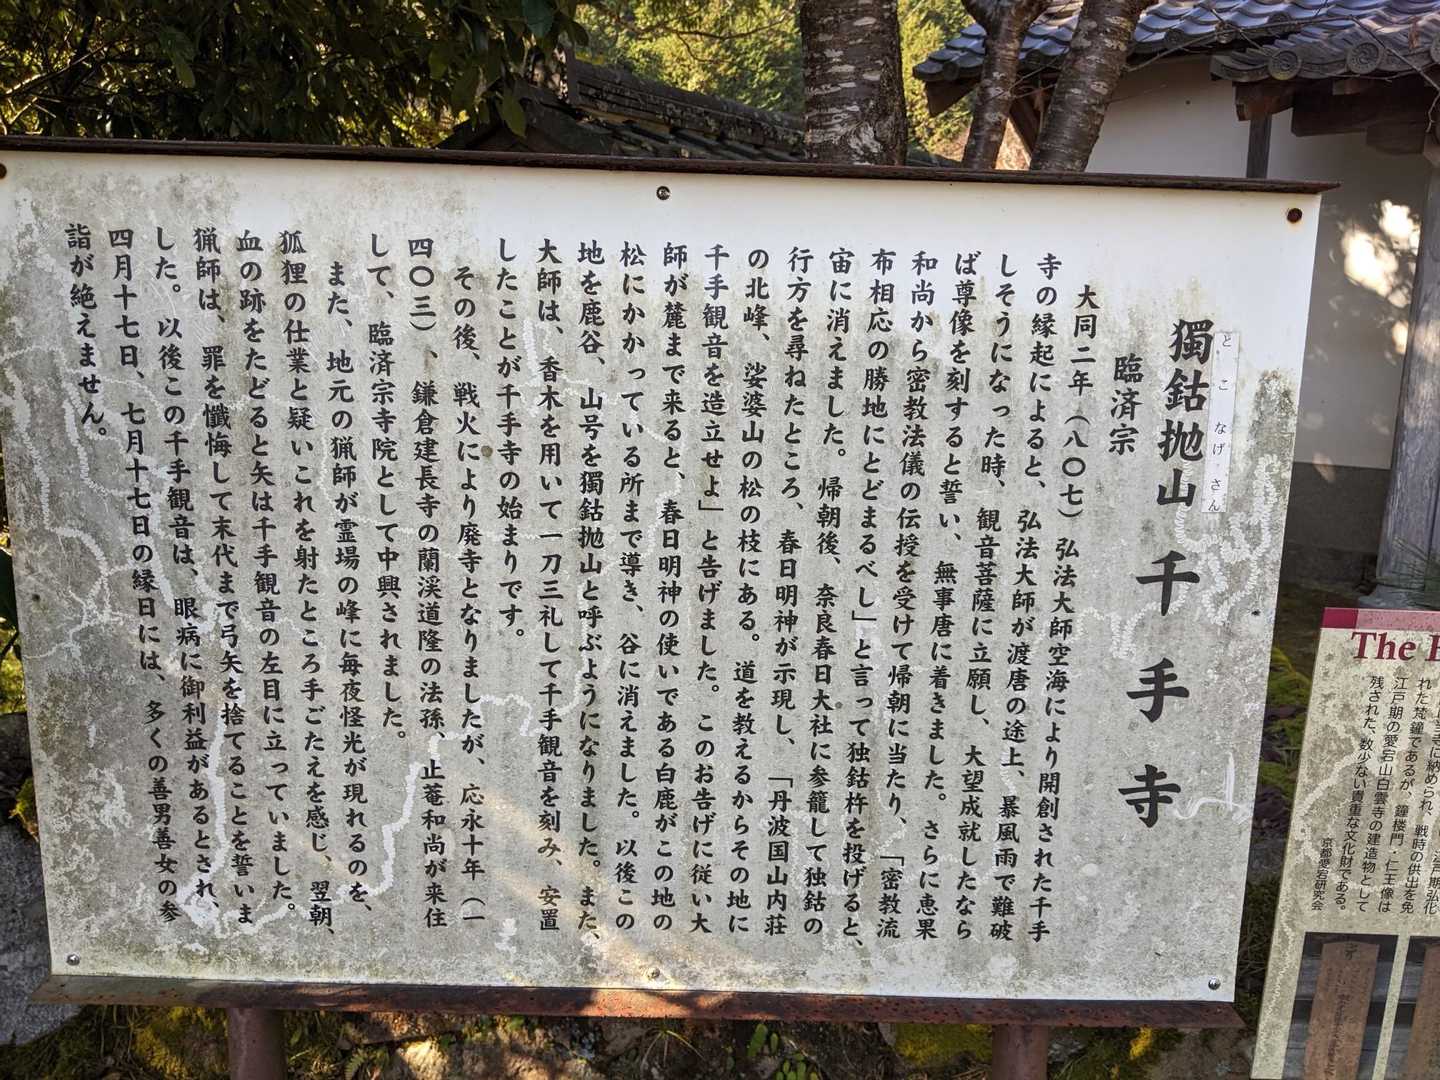 とこなげさん
獨鈷抛山 千手寺
臨済宗
大同二年（八〇七）弘法大師空海により開創された千手
寺の縁起によると、弘法大師が渡唐の途上、暴風雨で難破
しそうになった時、観音菩薩に立願し、大望成就したなら
ば尊像を刻すると誓い、無事唐に着きました。さらに恵果
和尚から密教法儀の伝授を受けて帰朝に当たり、「密教流
布相応の勝地にとどまるべし」と言って独鈷杵を投げると、
宙に消えました。帰朝後、奈良春日大社に参籠して独鈷の
行方を尋ねたところ、春日明神が示現し、「丹波国山内荘
の北峰、娑婆山の松の枝にある。道を教えるからその地に
千手観音を造立せよ」と告げました。このお告げに従い大
師が麓まで来ると、春日明神の使いである白鹿がこの地の
松にかかっている所まで導き、谷に消えました。以後この
地を鹿谷、山号を獨鈷抛山と呼ぶようになりました。また、
大師は、香木を用いて一刀三礼して千手観音を刻み、安置
したことが千手寺の始まりです。
その後、戦火により廃寺となりましたが、応永十年（一
四〇三）、鎌倉建長寺の蘭渓道隆の法孫、止菴和尚が来住
して、臨済宗寺院として中興されました。
また、地元の猟師が霊場の峰に毎夜怪光が現れるのを、
狐狸の仕業と疑いこれを射たところ手ごたえを感じ、翌朝、
血の跡をたどると矢は千手観音の左目に立っていました。
猟師は、罪を懺悔して末代まで弓矢を捨てることを誓いま
した。以後この千手観音は、眼病に御利益があるとされ、
四月十七日、七月十七日の縁日には、多くの善男善女の参
詣が絶えません。
The
に納められ、江戸期弘化
れた梵鐘であるが、戦時の供出を免
江戸期の愛宕山白雲寺の建造物として
残された、数少ない貴重な文化財である。
京都愛宕研究会